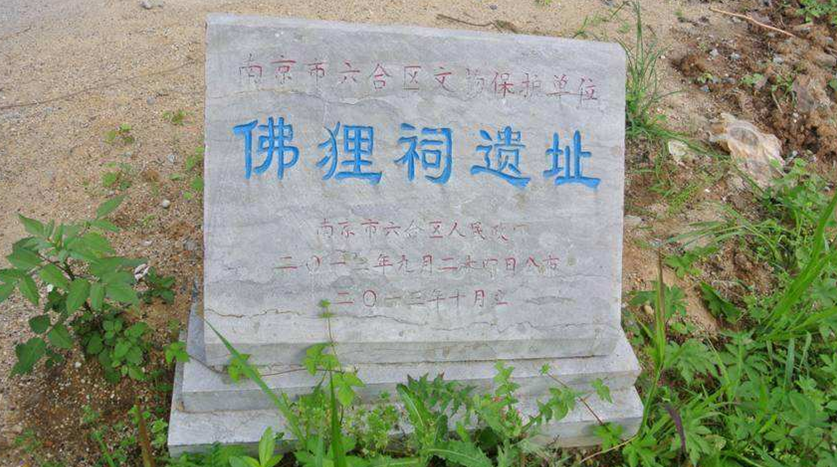 南京市六合区文物保护单位
佛狸祠遗址
南京市六合区人民政府
二〇一二年九月二十四日公布
二〇一三年十月立